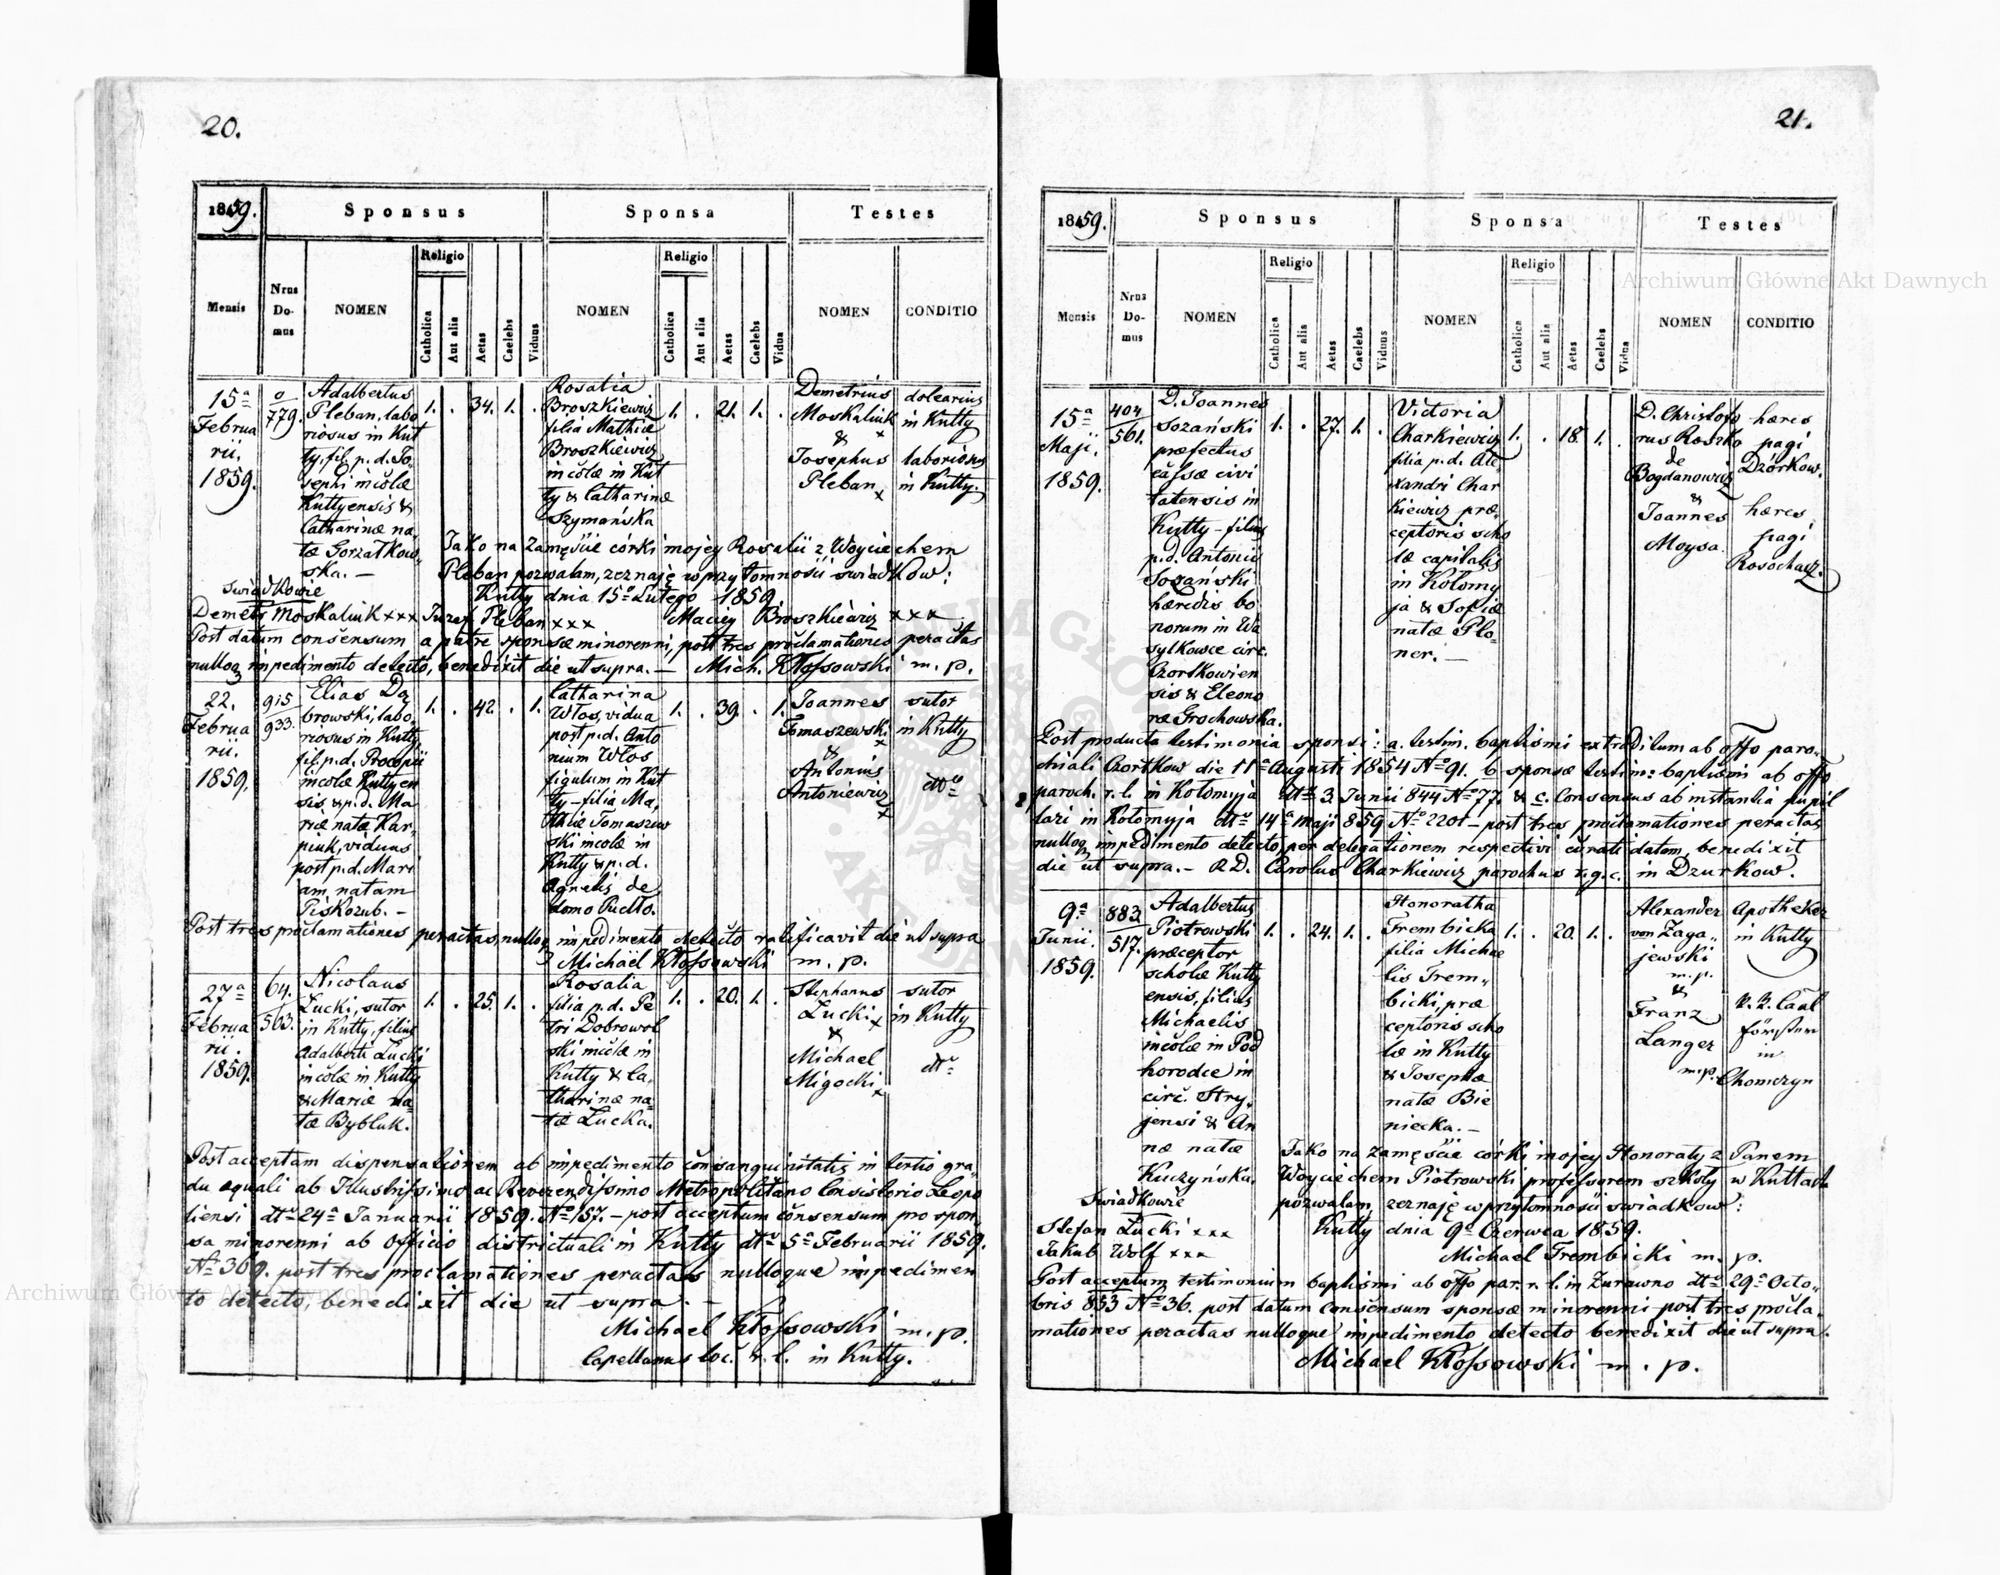 20.
1859.
Sponsus
Sponsa
Testes
Mensis
Nrus Domus
NOMEN
Religio
Catholica
Aut alia
Aetas
Caelebs
Viduus
NOMEN
Religio
Catholica
Aut alia
Aetas
Caelebs
Vidua
NOMEN
CONDITIO
15ª
Februa
rii.
1859.
0
779.
Adalbertus
Pleban, labo
riosus in Kut
ty, fil. p. d. Jo,
sephi incolæ
Kuttyensis &
Catharinæ na,
tæ Gorzałkow,
ska. —
1. . 34. 1. .
Rosalia
Broszkiewicz
filia Mathiæ
Broszkiewicz
incolæ in Kut
ty & Catharinæ
Szymańska
1. . 21. 1. .
Demetrius
Moskaliuk
x
&
Josephus
Pleban
x
dolearius
in Kutty
laboriosus
in Kutty.
Jako na Zamęście córki mojey Rosalii z Woyciechem
Pleban pozwalam, zeznaję w przytomności swiadków:
Swiadkowie
Kutty dnia 15º Lutego 1859.
Demetr Moskaliuk xxx Jozef Pleban xxx Maciey Broszkiewicz xxx
Post datum consensum a patre sponsæ minorenni, post tres proclamationes peractas
nulloq impedimento detecto, benedixit die ut supra. — Mich. Kłossowski m. p.
22.
Februa
rii.
1859.
915
933.
Elias Dą
browski, labo,
riosus in Kutty
fil. p. d. Procopii
incolæ Kuttyen
sis & p. d. Ma
riæ natæ Kar,
piuk, viduus
post p. d. Mari
am natam
Piskozub. —
1. . 42. . 1.
Catharina
Włos, vidua
post p. d. Anto
nium Włos
figulum in Kut
ty — filia Ma,
thiæ Tomaszew
ski incolæ in
Kutty & p. d.
Agnetis de
domo Pudło.
1. . 39. . 1.
Joannes
Tomaszewski
x
&
Antonius
Antoniewicz
x
sutor
in Kutty
dtº
Post tres proclamationes peractas, nulloq impedimento detecto ratificavit die ut supra
Michael Kłossowski m. p.
27ª
Februa
rii.
1859.
64.
563.
Nicolaus
Łucki, sutor
in Kutty, filius
Adalberti Łucki
incolæ in Kutty
& Mariæ na,
tæ Bybluk.
1. . 25. 1. .
Rosalia
filia p. d. Pe
tri Dobrowol
ski incolæ in
Kutty & Ca,
tharinæ na,
tæ Łucka.
1. . 20. 1. .
Stephanus
Łucki x
&
Michael
Migocki x
sutor
in Kutty
dtº
Post acceptam dispensationem ab impedimento consanguinitatis in tertio gra,
du equali ab Illustrissimo ac Reverendissimo Metropolitano Consistorio Leopo
liensi dtº 24ª Januarii 1859. Nº 157. — post acceptum consensum pro spon,
sa minorenni ab Officio districtuali in Kutty dtº 5ª Februarii 1859.
Nº 369. post tres proclamationes peractas nulloque impedimen
to detecto, benedixit die ut supra. —
Michael Kłossowski m. p.
Capellanus loc. r. l. in Kutty.
21.
1859.
Sponsus
Sponsa
Testes
Mensis
Nrus Domus
NOMEN
Religio
Catholica
Aut alia
Aetas
Caelebs
Viduus
NOMEN
Religio
Catholica
Aut alia
Aetas
Caelebs
Vidua
NOMEN
CONDITIO
15ª
Maji.
1859.
404
561.
D. Joannes
Sozański
præfectus
cassæ civi
tatensis in
Kutty — filius
p. d. Antonii
Sozański
hæredis bo
norum in Wa
sylkowce circ.
Czortkowien
sis & Eleono
ræ Grochowska.
1. . 27. 1. .
Victoria
Charkiewicz
filia p. d. Ale,
xandri Char
kiewicz præ,
ceptoris scho
læ capitalis
in Kołomy
ja & Sofiæ
natæ Plo,
ner. —
1. . 18. 1. .
D. Christofo
rus Roszko
de
Bogdanowicz
&
Joannes
Moysa.
hæres
pagi
Dżórkow.
hæres
pagi
Rosochacz.
Post producta testimonia sponsi: a. testim. baptismi extraditum ab offo paro,
chiali Czortkow die 11ª Augusti 1854 Nº 91. b sponsæ testim: baptismi ab offo
paroch. r. l. in Kołomyja dtº 3 Junii 844 Nº 77. & c. Consensus ab instantia pupil
lari in Kołomyja dtº 14ª Maji 859 Nº 2201 — post tres proclamationes peractas
nulloq impedimento detecto, per delegationem respectivi curati datam, benedixit
die ut supra. — R. D. Carolus Charkiewicz parochus r. g. c. in Dzurkow.
9ª
Junii.
1859.
883
517.
Adalbertus
Piotrowski
præceptor
scholæ Kutty
ensis, filius
Michaelis
incolæ in Pod
horodce in
circ. Stry,
jensi & An
næ natæ
Kuczyńska.
1. . 24. 1. .
Honoratha
Trembicka
filia Michae
lis Trem,
bicki, præ
ceptoris scho
læ in Kutty
& Josephæ
natæ Bie
niecka. —
1. . 20. 1. .
Alexander
von Zaga,
jewski
m. p.
&
Franz
Langer
m. p.
Apotheker
in Kutty
K. K. Caal
Förster
in
Chomczyn
Jako na zamęście córki mojey Honoraty z Panem
Woyciechem Piotrowski professorem szkoły w Kuttach
Swiadkowie
pozwalam, zeznaję w przytomności swiadkow:
Stefan Łucki xxx
Kutty dnia 9º Czerwca 1859.
Jakub Wolf xxx
Michael Trembicki m. p.
Post acceptum testimonium baptismi ab offo par. r. l. in Zurawno dtº 29ª Octo,
bris 853 Nº 36. post datum consensum sponsæ minorenni post tres procla,
mationes peractas nulloque impedimento detecto benedixit die ut supra.
Michael Kłossowski m. p.
Archiwum Główne Akt Dawnych
Archiwum Główne Akt Dawnych